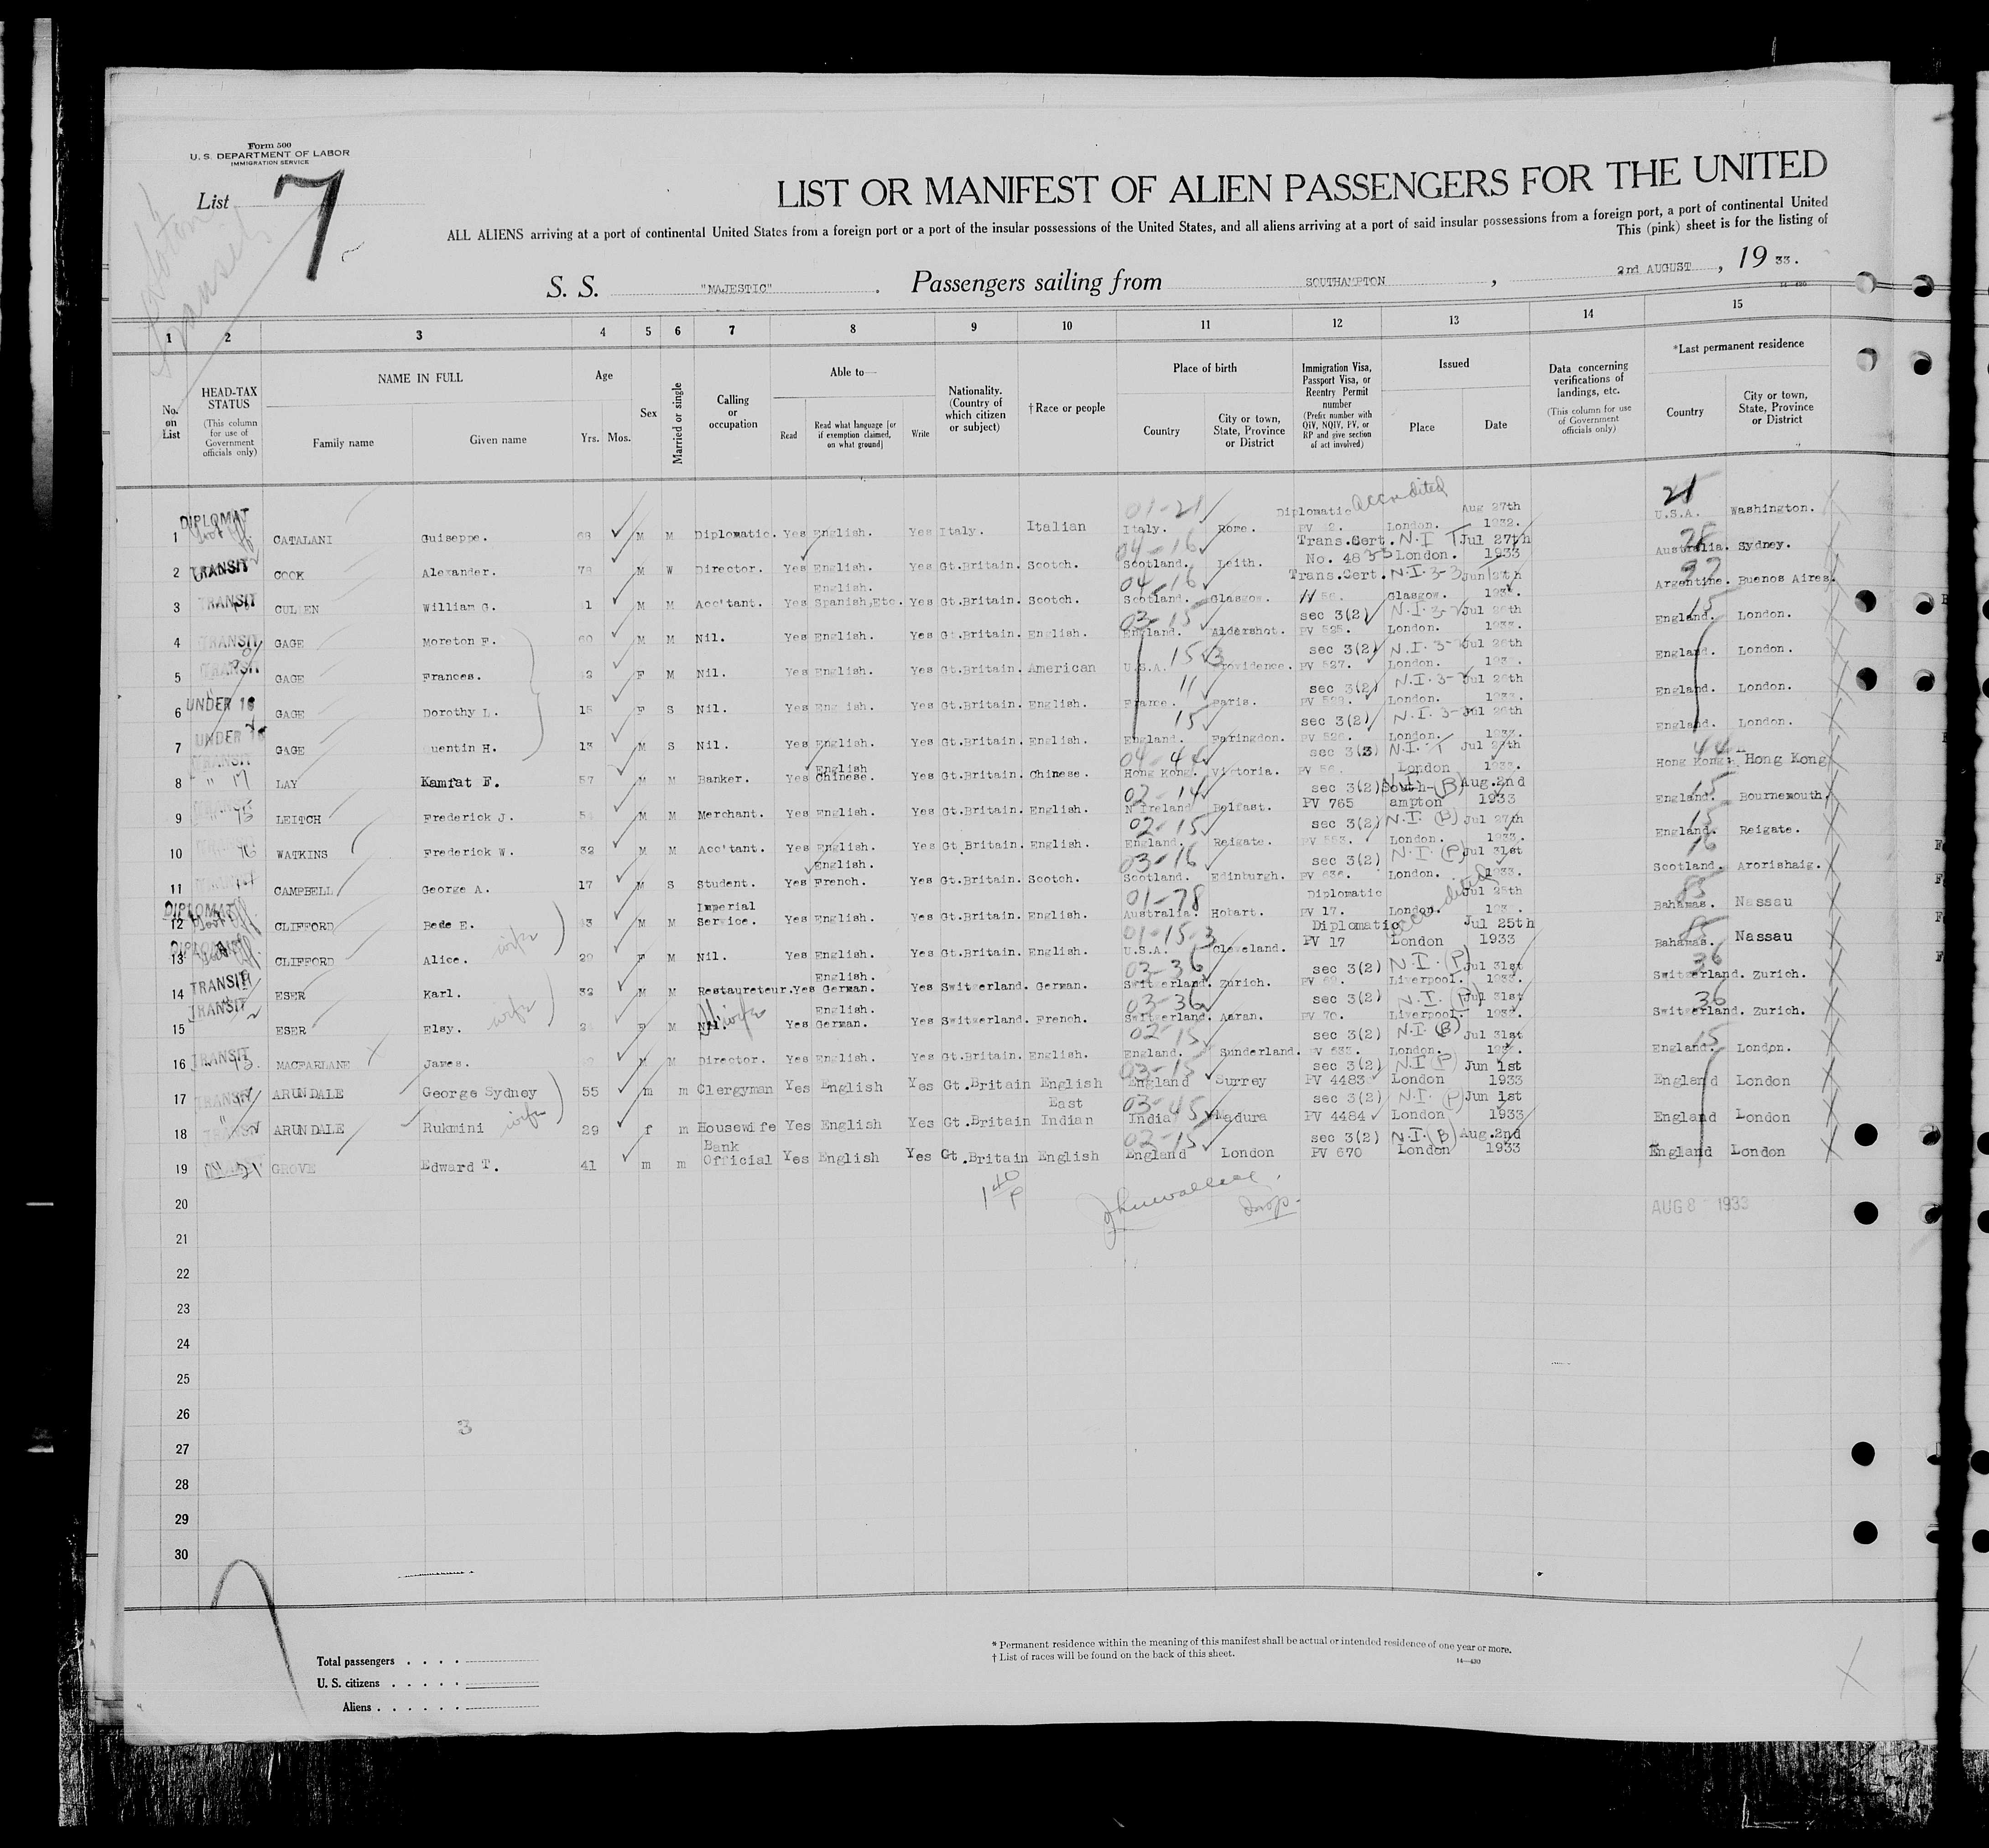 Form 500
U. S. DEPARTMENT OF LABOR
IMMIGRATION SERVICE
List 7
LIST OR MANIFEST OF ALIEN PASSENGERS FOR THE UNITED
ALL ALIENS arriving at a port of continental United States from a foreign port or a port of the insular possessions of the United States, and all aliens arriving at a port of said insular possessions from a foreign port, a port of continental United
This (pink) sheet is for the listing of
S. S. "MAJESTIC" . Passengers sailing from SOUTHAMPTON , 2nd AUGUST , 19 33.
1 2 3 4 5 6 7 8 9 10 11 12 13 14 15
No. on List
HEAD-TAX STATUS (This column for use of Government officials only)
NAME IN FULL
Family name Given name
Age Yrs. Mos.
Sex
Married or single
Calling or occupation
Able to—
Read Read what language [or if exemption claimed, on what ground] Write
Nationality. (Country of which citizen or subject)
†Race or people
Place of birth
Country City or town, State, Province or District
Immigration Visa, Passport Visa, or Reentry Permit number (Prefix number with QIV, NQIV, PV, or RP and give section of act involved)
Issued
Place Date
Data concerning verifications of landings, etc. (This column for use of Government officials only)
*Last permanent residence
Country City or town, State, Province or District
1 DIPLOMAT CATALANI Guiseppe. M M Diplomatic. Yes English. Yes Italy. Italian 01-21 Italy. Rome. Diplomatic Accredited London. Aug 27th 1932. 21 U.S.A. Washington.
2 TRANSIT COOK Alexander. M W Director. Yes English. Yes Gt.Britain. Scotch. 04-16 Scotland. Leith. Trans.Cert. No. 4833 N.I T London. Jul 27th 1933 Australia. Sydney.
3 TRANSIT CULLEN William G. M M Acc'tant. Yes English. Spanish,Etc. Yes Gt.Britain. Scotch. 04-16 Scotland. Glasgow. Trans.Cert. N.I. 3-3 Glasgow. Argentine. Buenos Aires.
4 TRANSIT GAGE Moreton F. M M Nil. Yes English. Yes Gt.Britain. English. 03-15 England. Aldershot. sec 3(2) PV 525. London. Jul 26th 1933. 15 England. London.
5 TRANSIT GAGE Frances. F M Nil. Yes English. Yes Gt.Britain. American U.S.A. 15 3 Providence. sec 3(2) PV 527. London. Jul 26th England. London.
6 UNDER 16 GAGE Dorothy L. 15 F S Nil. Yes English. Yes Gt.Britain. English. 11 France. Paris. sec 3(2) London. Jul 26th 1933. England. London.
7 UNDER 16 GAGE Quentin H. 13 M S Nil. Yes English. Yes Gt.Britain. English. 15 England. Faringdon. sec 3(2) London. Jul 26th 1933. England. London.
8 TRANSIT LAY Kamfat F. 57 M M Banker. Yes English Chinese. Yes Gt.Britain. Chinese. 04-44 Hong Kong. Victoria. sec 3(3) N.I. T London Jul 27th 1933. 44 Hong Kong. Hong Kong
9 LEITCH Frederick J. M M Merchant. Yes English. Yes Gt.Britain. English. 02-14 N Ireland Belfast. sec 3(2) PV 765 South- ampton N.I. (B) Aug.2nd 1933 15 England. Bournemouth
10 WATKINS Frederick W. 32 M M Acc'tant. Yes English. Yes Gt.Britain. English. 02-15 England. Reigate. sec 3(2) PV 553. N.I. (B) London. Jul 27th 1933. 15 England. Reigate.
11 CAMPBELL George A. 17 M S Student. Yes English. French. Yes Gt.Britain. Scotch. 03-16 Scotland. Edinburgh. sec 3(2) PV 636. N.I. (P) London. Jul 31st 1933. 16 Scotland. Arorishaig.
12 DIPLOMAT CLIFFORD Bede E. M M Imperial Service. Yes English. Yes Gt.Britain. English. 01-78 Australia. Hobart. Diplomatic PV 17. London. Jul 25th Bahamas. Nassau
13 DIPLOMAT CLIFFORD Alice. wife F M Nil. Yes English. Yes Gt.Britain. English. 01-15-3 U.S.A. Cleveland. Diplomatic PV 17 London Jul 25th 1933 Bahamas. Nassau
14 TRANSIT ESER Karl. 32 M M Restaureteur. Yes English. German. Yes Switzerland. German. 03-36 Switzerland. Zurich. sec 3(2) N.I. (P) Liverpool. Jul 31st 1933. 36 Switzerland. Zurich.
15 TRANSIT ESER Elsy. wife F M Yes English. German. Yes Switzerland. French. 03-36 Switzerland. Aaran. sec 3(2) PV 70. N.I. (P) Liverpool. Jul 31st 1933. 36 Switzerland. Zurich.
16 TRANSIT MACFARLANE James. M M Director. Yes English. Yes Gt.Britain. English. 02-15 England. Sunderland. sec 3(2) N.I. (B) London. Jul 31st 15 England. London.
17 TRANSIT ARUNDALE George Sydney 55 m m Clergyman Yes English Yes Gt.Britain English 03-15 England Surrey sec 3(2) PV 4483 N.I (P) London Jun 1st 1933 England London
18 TRANSIT ARUNDALE Rukmini wife 29 f m Housewife Yes English Yes Gt.Britain East Indian 03-45 India Madura sec 3(2) PV 4484 N.I. (P) London Jun 1st 1933 England London
19 GROVE Edward T. 41 m m Bank Official Yes English Yes Gt.Britain English 02-15 England London sec 3(2) PV 670 N.I. (B) London Aug.2nd 1933 England London
20 AUG 8 1933
21
22
23
24
25
26
3
27
28
29
30
Total passengers . . . .
U. S. citizens . . . . .
Aliens . . . . . .
* Permanent residence within the meaning of this manifest shall be actual or intended residence of one year or more.
† List of races will be found on the back of this sheet.
14—430